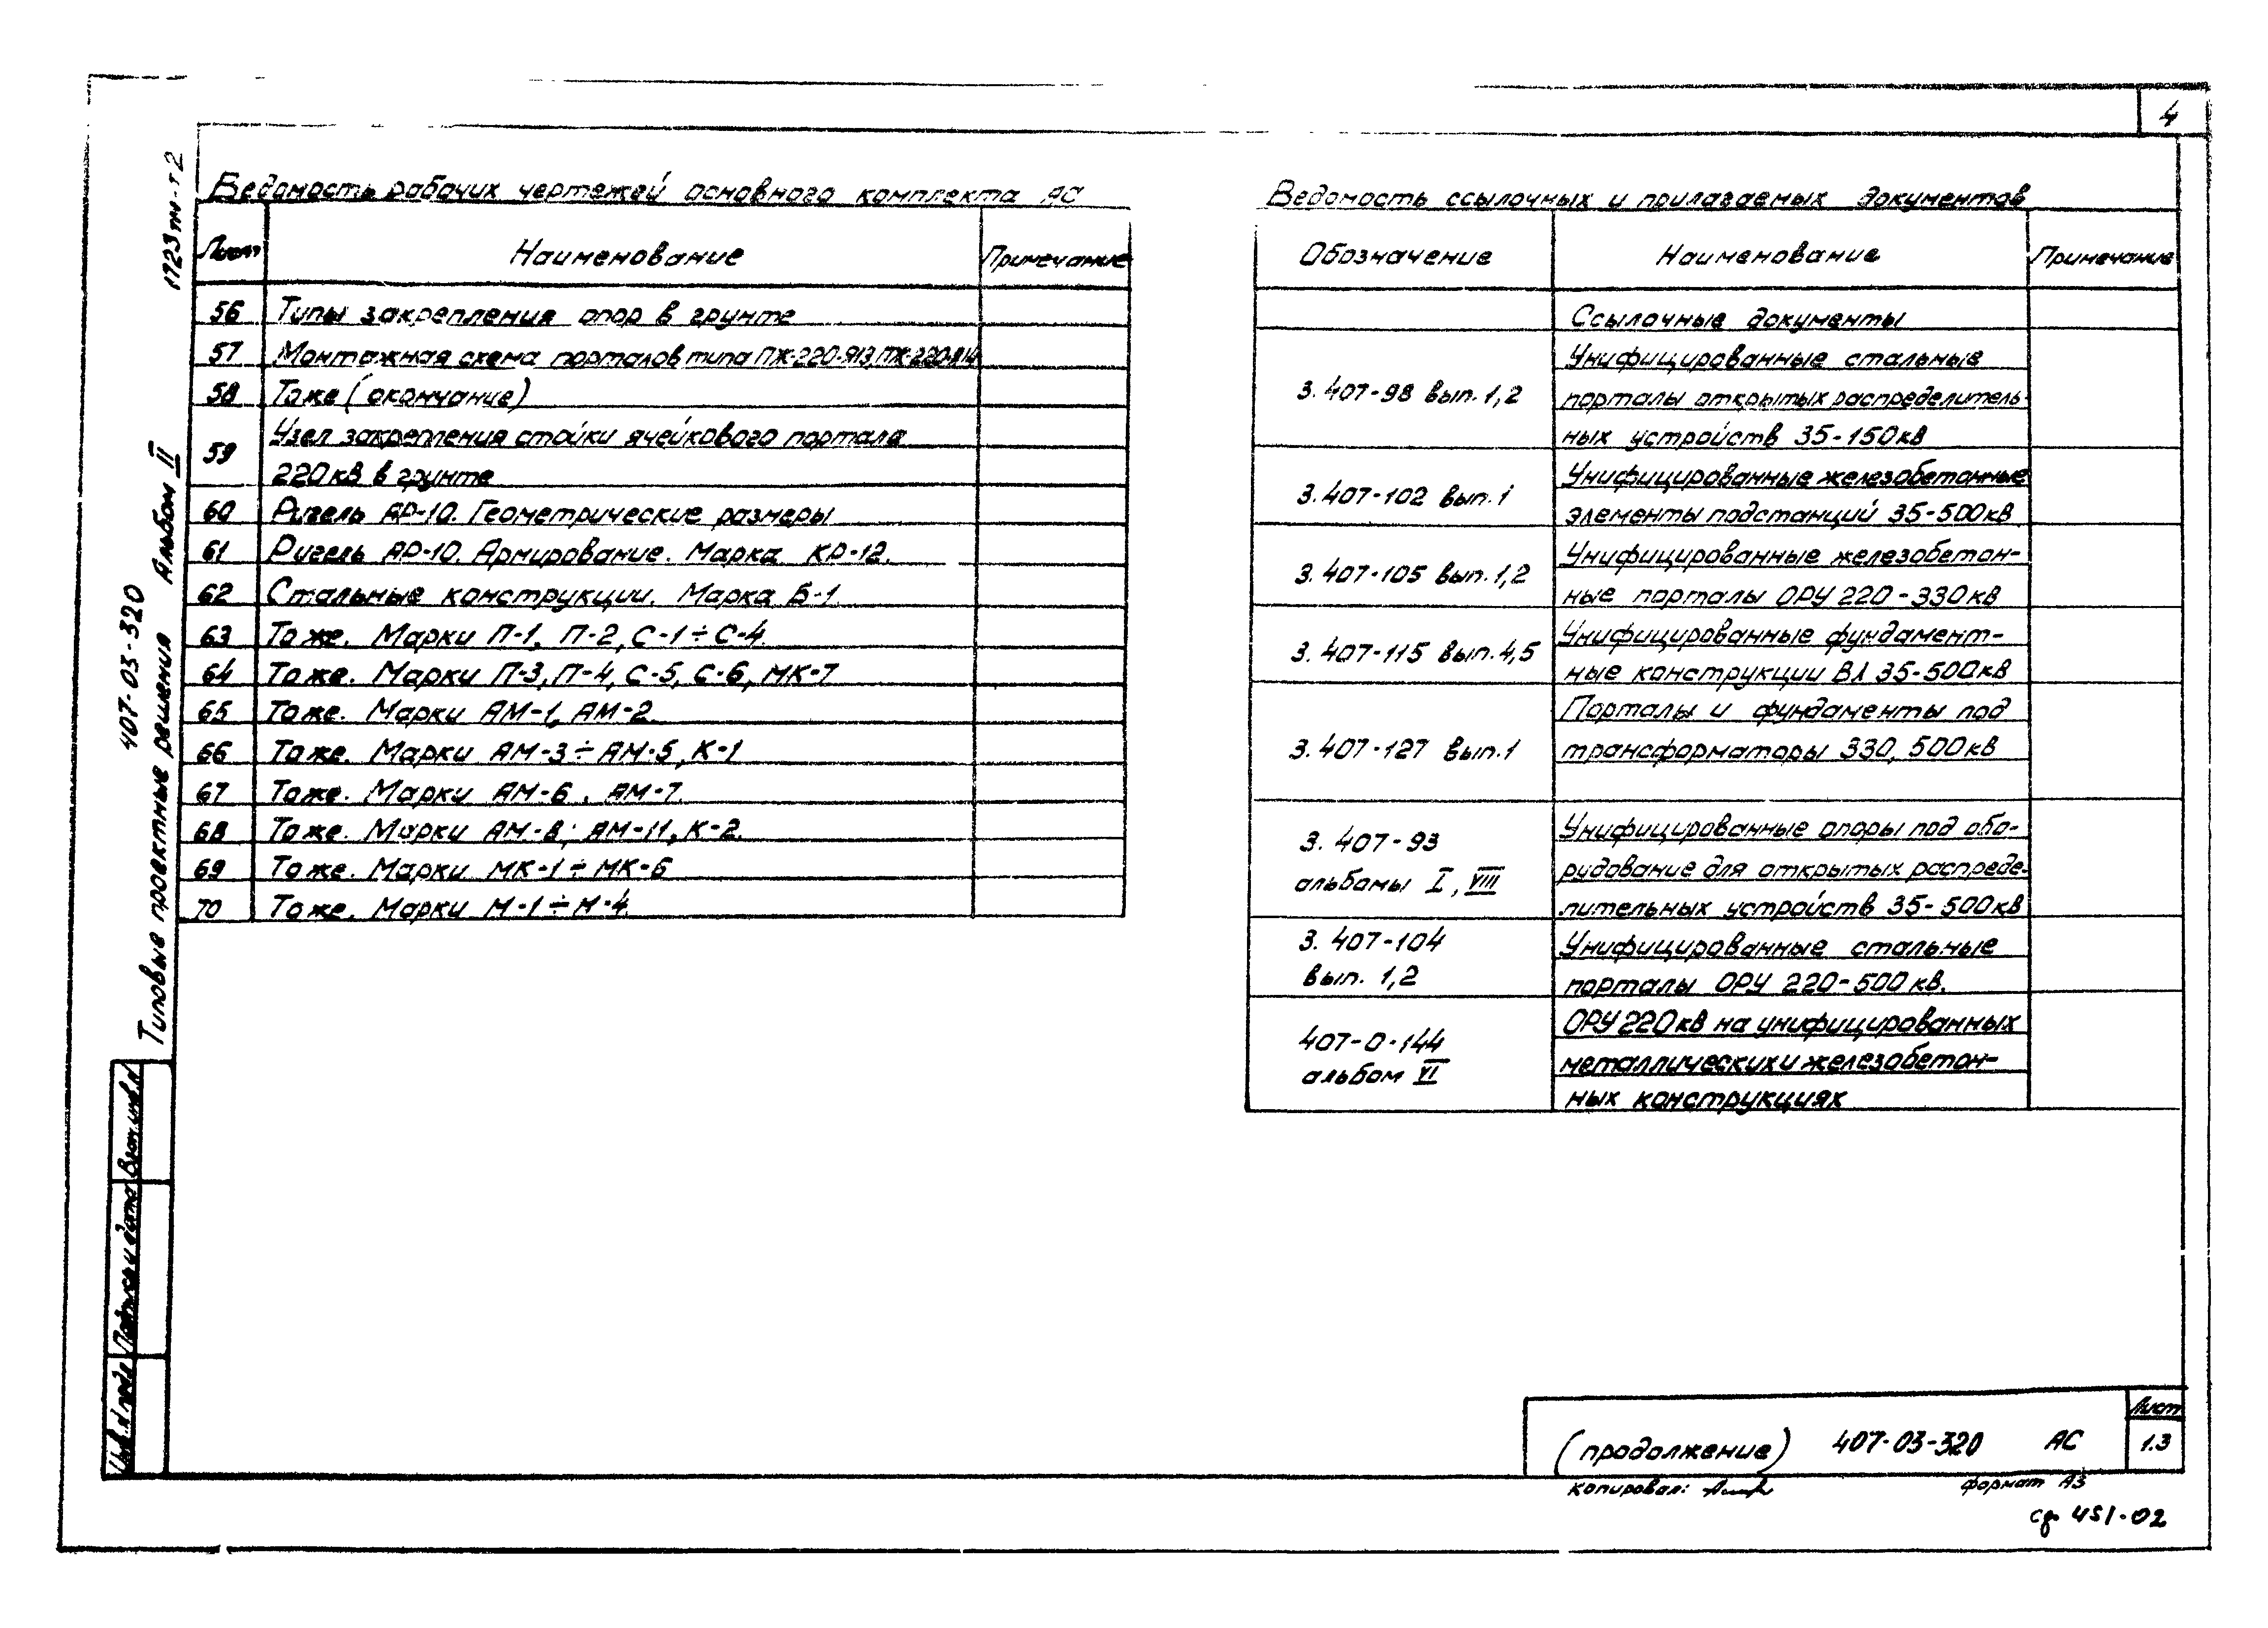 4
1723тм-т2
407-03-320
Типовые проектные решения Альбом II
Ведомость рабочих чертежей основного комплекта АС
Лист Наименование Примечание
56 Типы закрепления опор в грунте
57 Монтажная схема порталов типа ПЖ-220-Я13, ПЖ-220-Я14
58 Тоже (окончание)
59 Узел закрепления стойки ячейкового портала
220кв в грунте
60 Ригель АР-10. Геометрические размеры
61 Ригель АР-10. Армирование. Марка КР-12.
62 Стальные конструкции. Марка Б-1.
63 Тоже. Марки П-1, П-2, С-1÷С-4.
64 Тоже. Марки П-3, П-4, С-5, С-6, МК-7
65 Тоже. Марки АМ-1, АМ-2.
66 Тоже. Марки АМ-3÷АМ-5, К-1
67 Тоже. Марки АМ-6, АМ-7.
68 Тоже. Марки АМ-8; АМ-11, К-2.
69 Тоже. Марки МК-1÷МК-6
70 Тоже. Марки М-1÷М-4.
Ведомость ссылочных и прилагаемых документов
Обозначение Наименование Примечание
Ссылочные документы
Унифицированные стальные
3.407-98 вып.1,2 порталы открытых распределитель-
ных устройств 35-150кв
3.407-102 вып.1 Унифицированные железобетонные
элементы подстанций 35-500кв
3.407-105 вып.1,2 Унифицированные железобетон-
ные порталы ОРУ 220-330кв
3.407-115 вып.4,5 Унифицированные фундамент-
ные конструкции ВЛ 35-500кв
Порталы и фундаменты под
3.407-127 вып.1 трансформаторы 330, 500кв
3.407-93 Унифицированные опоры под обо-
альбомы I, VIII рудование для открытых распреде-
лительных устройств 35-500кв
3.407-104 Унифицированные стальные
вып. 1,2 порталы ОРУ 220-500кв.
ОРУ 220кв на унифицированных
407-0-144 металлических и железобетон-
альбом VI ных конструкциях
Инв.№подл. Подпись и дата Взам.инв.№
(продолжение) 407-03-320 АС
Лист
1.3
Копировал: формат А3
сф 451-02